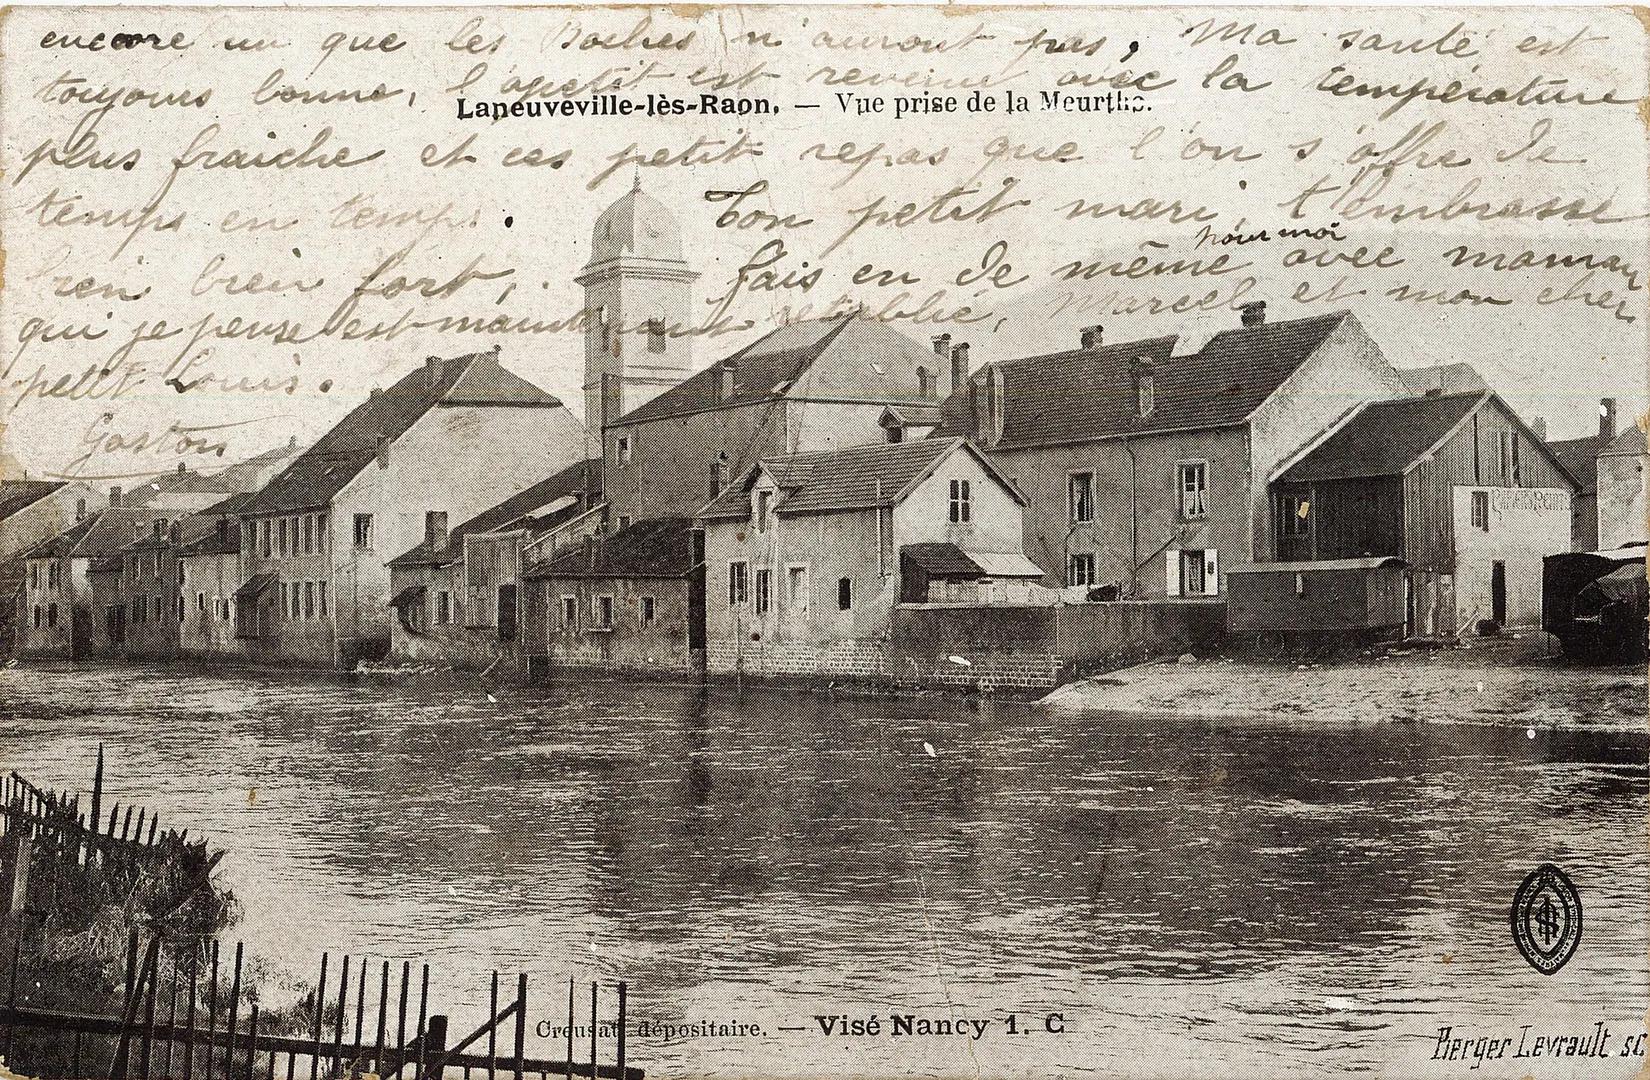 encore un que les Boches n'auront pas, Ma santé est
toujours bonne, l'apetit est revenue avec la température
Laneuveville-lès-Raon. — Vue prise de la Meurthe.
plus fraiche et ces petit repas que l'on s'offre de
temps en temps. Ton petit mari, t'embrasse
bien bien fort, fais en de même pour moi avec maman
qui je pense est maintenant rétablie, Marcel et mon cher
petit Louis.
Gaston
Creusat dépositaire. — Visé Nancy 1. C
Berger Levrault sc